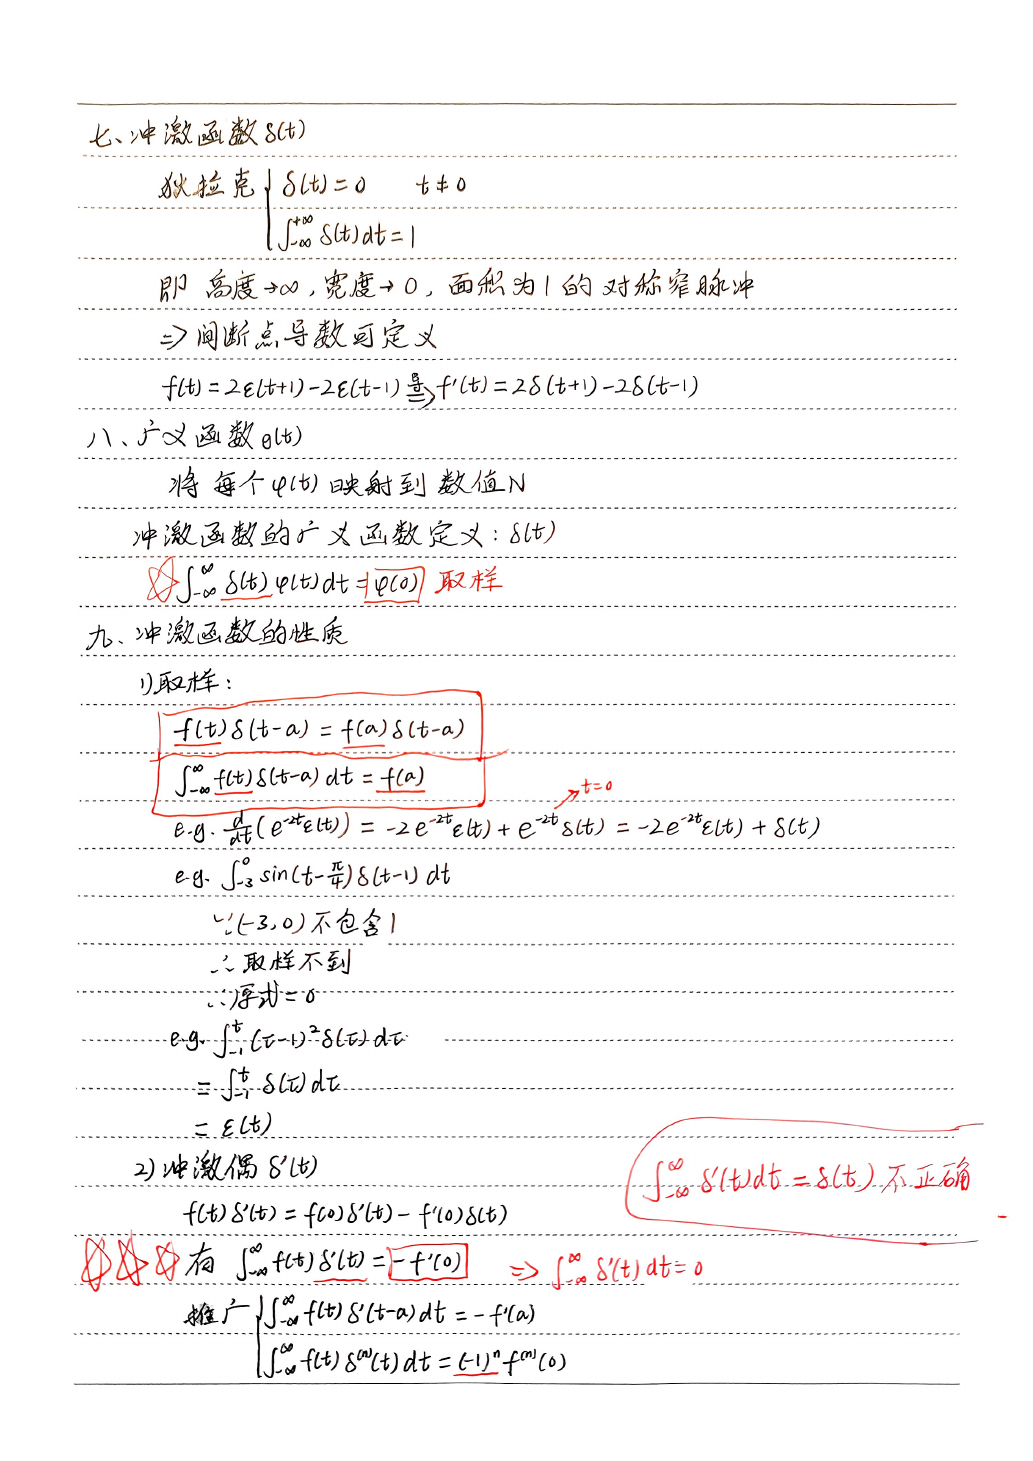 七、冲激函数 δ(t)
狄拉克 { δ(t)=0 t≠0
∫_{-∞}^{+∞} δ(t)dt=1
即 高度→∞,宽度→0,面积为1的对称窄脉冲
=> 间断点导数可定义
f(t)=2ε(t+1)-2ε(t-1) 导=> f'(t)=2δ(t+1)-2δ(t-1)
八、广义函数 g(t)
将每个φ(t)映射到数值N
冲激函数的广义函数定义:δ(t)
☆ ∫_{-∞}^{∞} δ(t)φ(t)dt=φ(0) 取样
九、冲激函数的性质
1)取样:
f(t)δ(t-a)=f(a)δ(t-a)
∫_{-∞}^{∞} f(t)δ(t-a)dt=f(a)
t=0
e.g. d/dt(e^{-2t}ε(t))=-2e^{-2t}ε(t)+e^{-2t}δ(t)=-2e^{-2t}ε(t)+δ(t)
e.g. ∫_{-3}^{0} sin(t-π/4)δ(t-1)dt
∵(-3,0)不包含1
∴取样不到
∴原式=0
e.g. ∫_{-1}^{t} (τ-1)²δ(τ)dτ
=∫_{-1}^{t} δ(τ)dτ
=ε(t)
2)冲激偶 δ'(t)
∫_{-∞}^{∞} δ'(t)dt=δ(t) 不正确
f(t)δ'(t)=f(0)δ'(t)-f'(0)δ(t)
☆☆☆ 有 ∫_{-∞}^{∞} f(t)δ'(t)=-f'(0) => ∫_{-∞}^{∞} δ'(t)dt=0
推广 { ∫_{-∞}^{∞} f(t)δ'(t-a)dt=-f'(a)
∫_{-∞}^{∞} f(t)δ^{(n)}(t)dt=(-1)^n f^{(n)}(0)